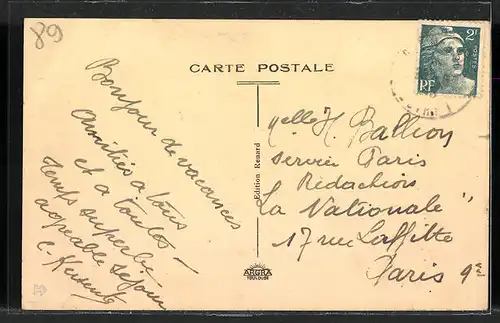 89
CARTE POSTALE
2F
POSTES
RF
Bonjour de vacances
Amitiés a tous
et a toutes
temps superbe
agréable séjour
Edition Renard
Melle H. Ballion
service Paris
Rédactions
La Nationale"
17 rue Laffitte
Paris 9e
ARGRA
TOULOUSE